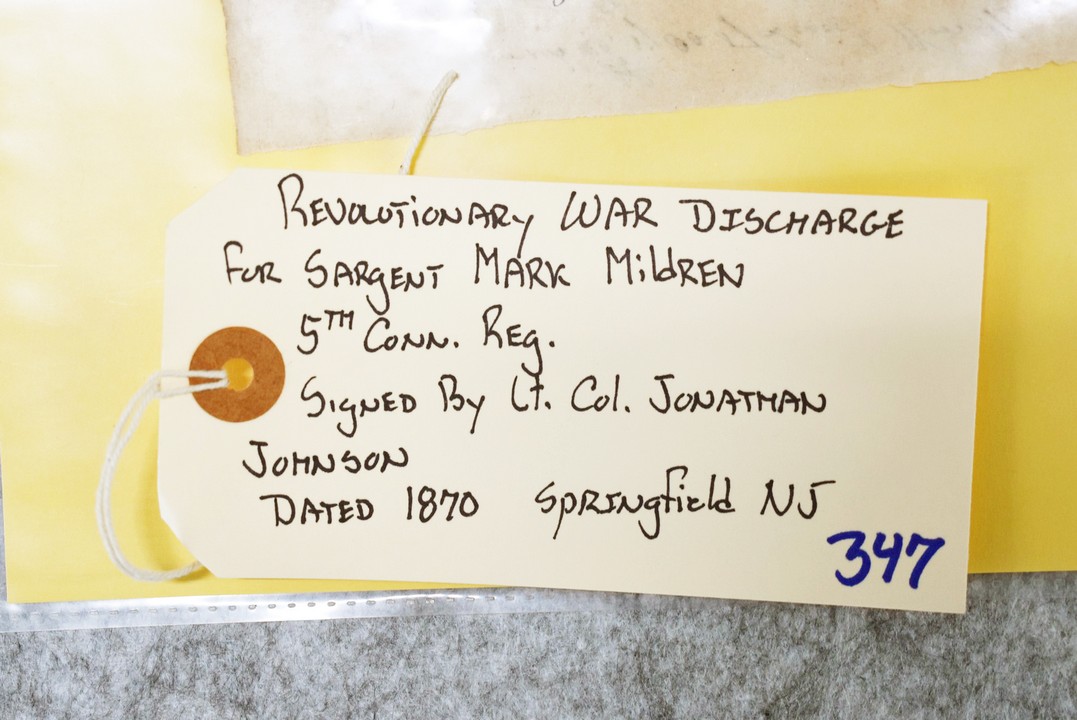 Revolutionary War Discharge
for Sargent Mark Mildren
5TH Conn. Reg.
Signed By Lt. Col. Jonathan
Johnson
Dated 1870 Springfield NJ
347